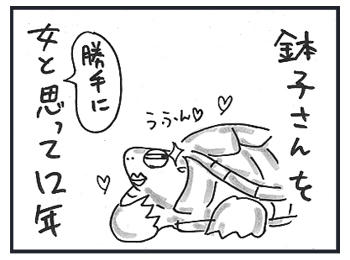 鉢子さんを
うふん♡
勝手に
女と思って12年